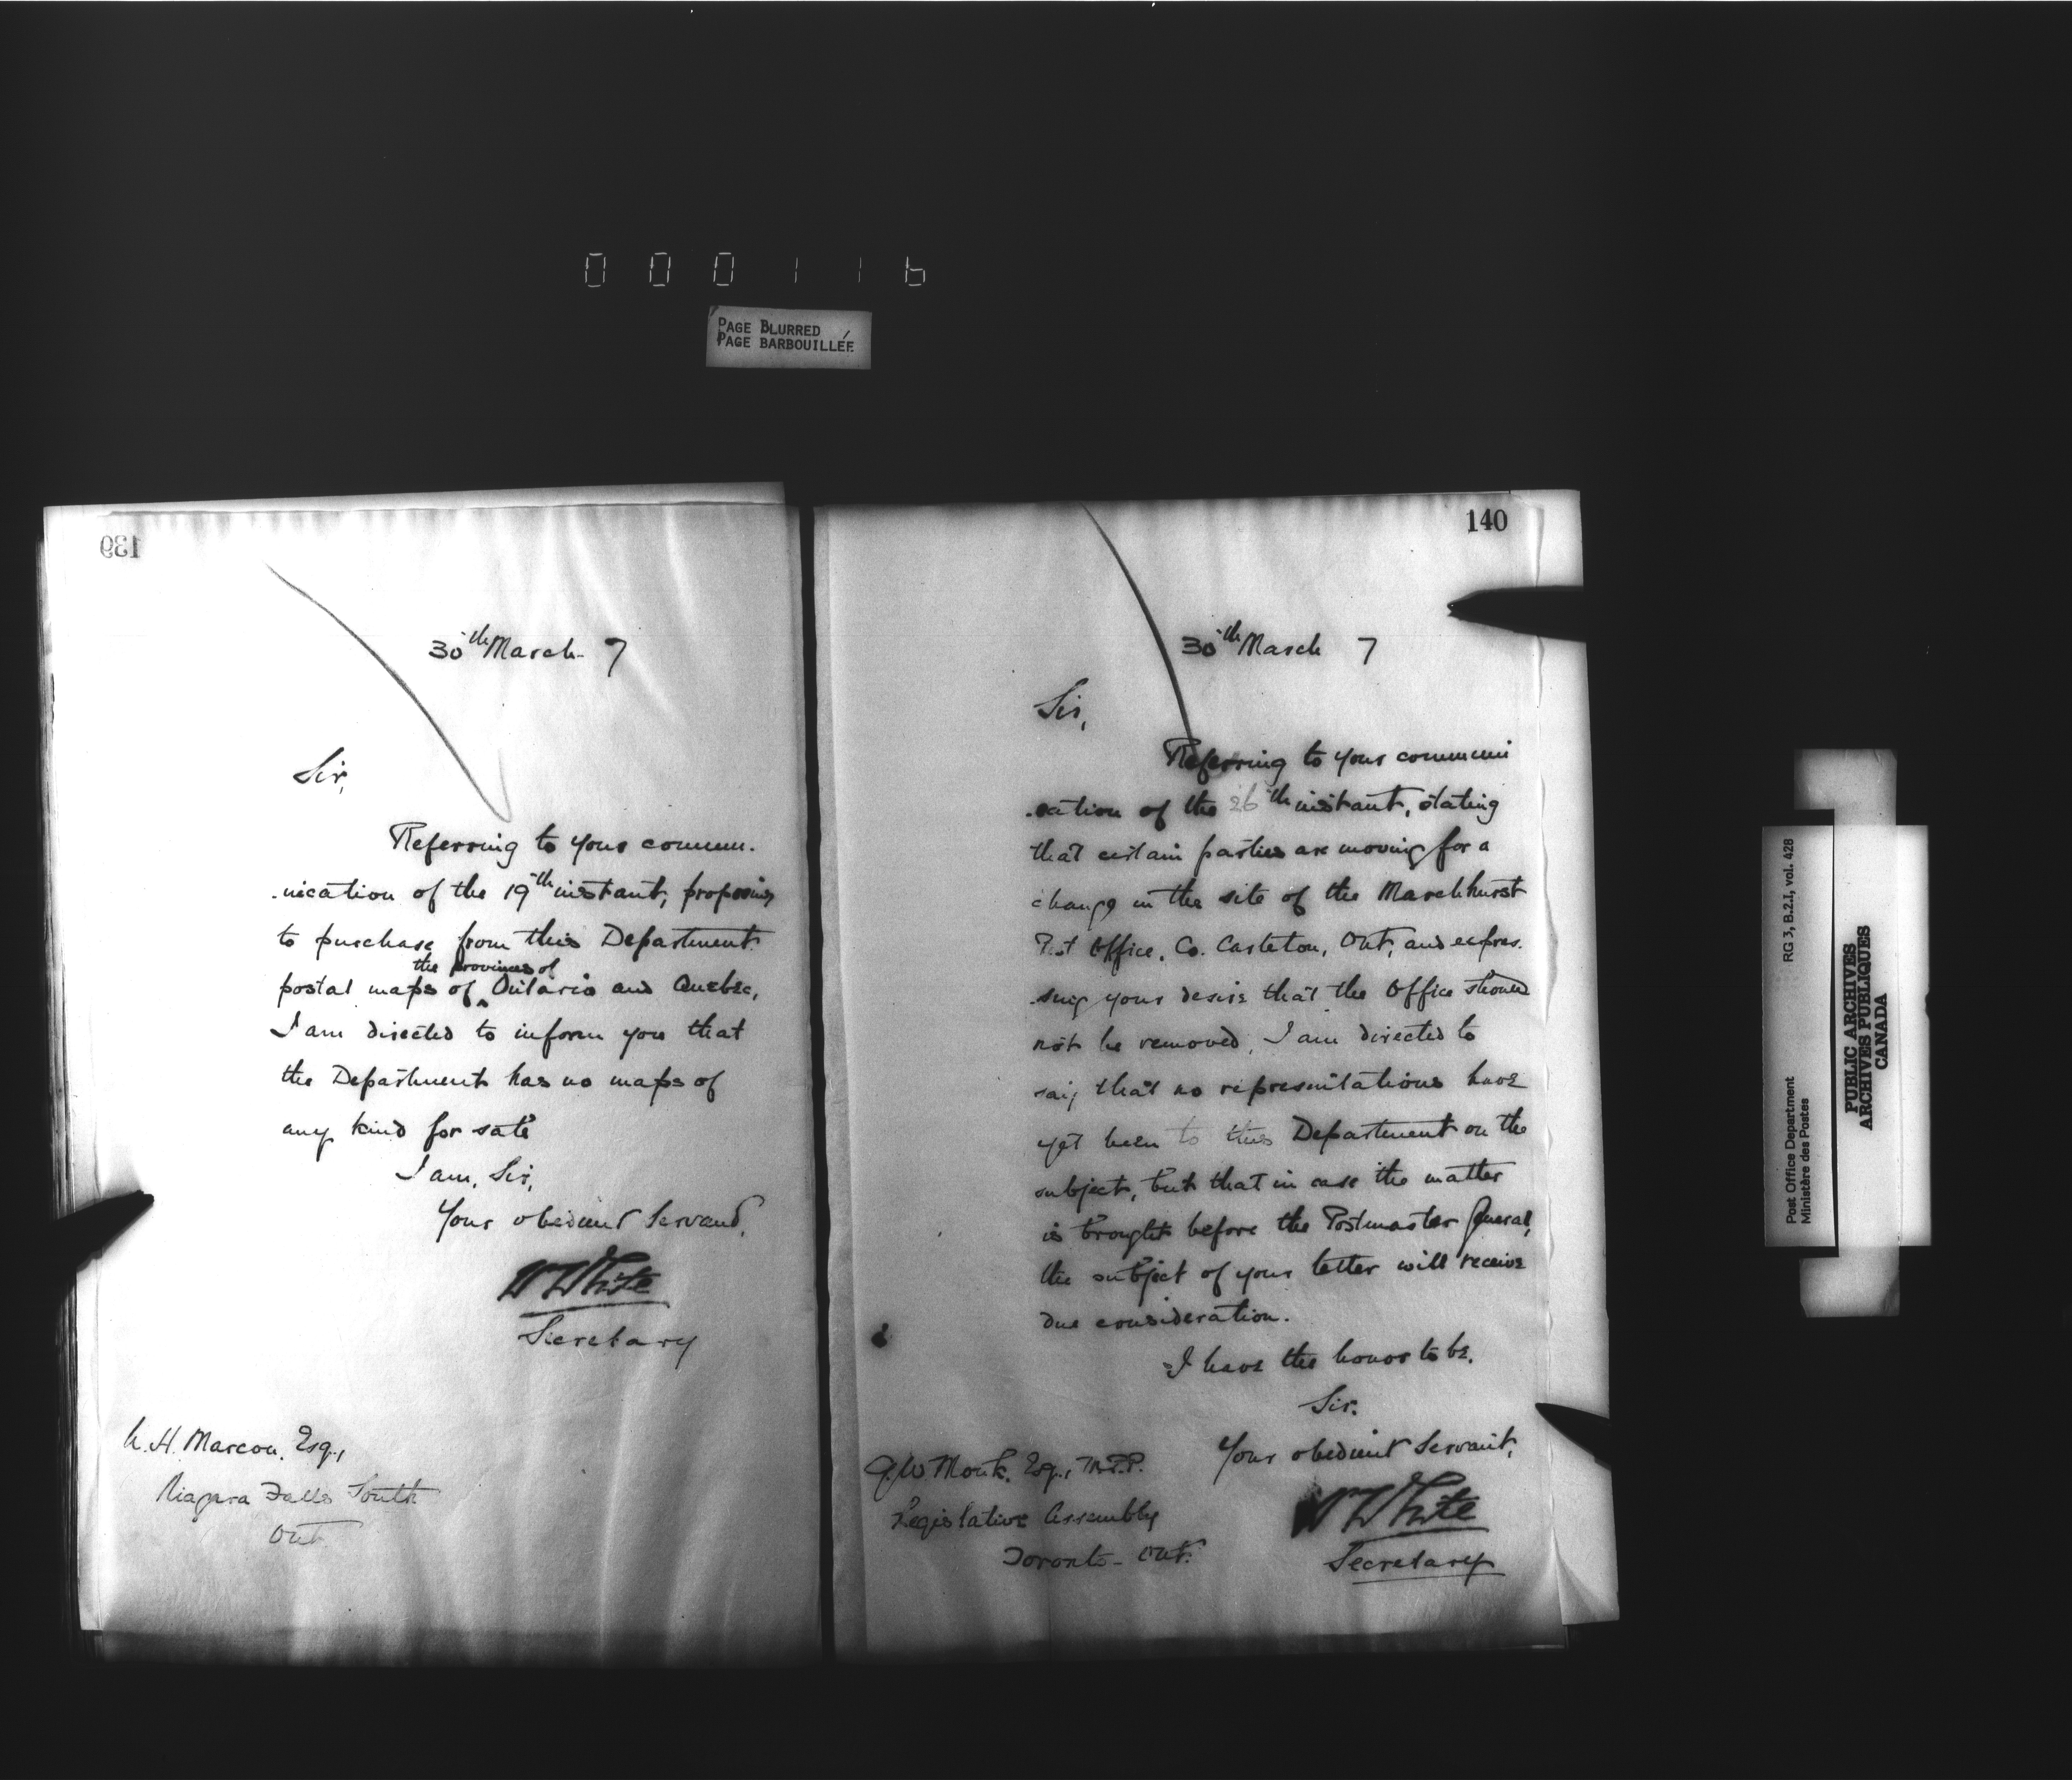 000116
PAGE BLURRED
PAGE BARBOUILLÉE
139
30th March 7
Sir,
Referring to your commu-
-nication of the 19th instant, proposing
to purchase from this Department
postal maps of the provinces of Ontario and Quebec,
I am directed to inform you that
the Department has no maps of
any kind for sale
I am, Sir,
Your obedient Servant,
W White
Secretary
H. Marcon, Esq.,
Niagara Falls South
Ont
140
30th March 7
Sir,
Referring to your communi
-cation of the 26th instant, stating
that certain parties are moving for a
change in the site of the Marchhurst
Post Office, Co. Carleton, Ont, and expres-
-sing your desire that the Office should
not be removed, I am directed to
say that no representations have
yet been to this Department on the
subject, but that in case the matter
is brought before the Postmaster General,
the subject of your letter will receive
due consideration.
I have the honor to be,
Sir.
Your obedient Servant,
W White
Secretary
G. W. Monk, Esq., M.P.P.
Legislative Assembly
Toronto - Ont.
Post Office Department
Ministère des Postes
RG 3, B.2.I, vol. 428
PUBLIC ARCHIVES
ARCHIVES PUBLIQUES
CANADA